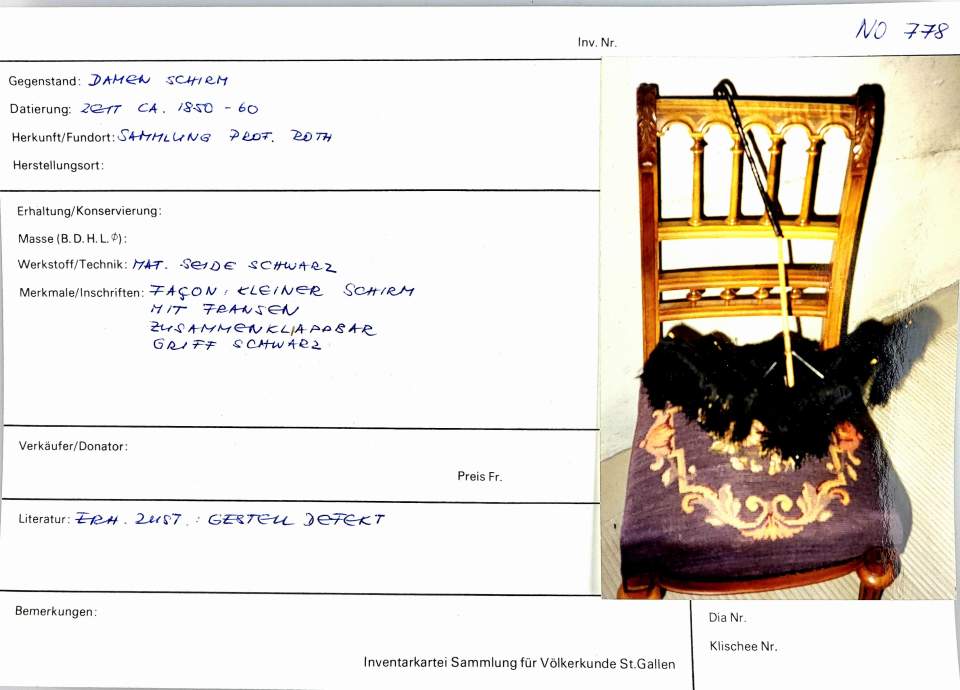 Inv. Nr. NO 778
Gegenstand: DAMEN SCHIRM
Datierung: ZEIT CA. 1850 - 60
Herkunft/Fundort: SAMMLUNG PROF. ROTH
Herstellungsort:
Erhaltung/Konservierung:
Masse (B. D. H. L. ϕ):
Werkstoff/Technik: MAT. SEIDE SCHWARZ
Merkmale/Inschriften: FAÇON: KLEINER SCHIRM
MIT FRANSEN
ZUSAMMENKLAPPBAR
GRIFF SCHWARZ
Verkäufer/Donator:
Preis Fr.
Literatur: ERH. ZUST.: GESTELL DEFEKT
Bemerkungen:
Dia Nr.
Klischee Nr.
Inventarkartei Sammlung für Völkerkunde St.Gallen